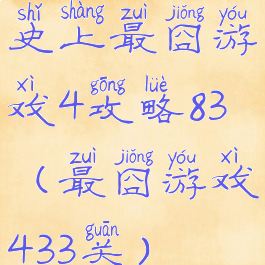 shǐ shàng zuì jiǒng yóu
史上最囧游
xì gōng lüè
戏4攻略83
zuì jiǒng yóu xì
（最囧游戏
guān
433关）